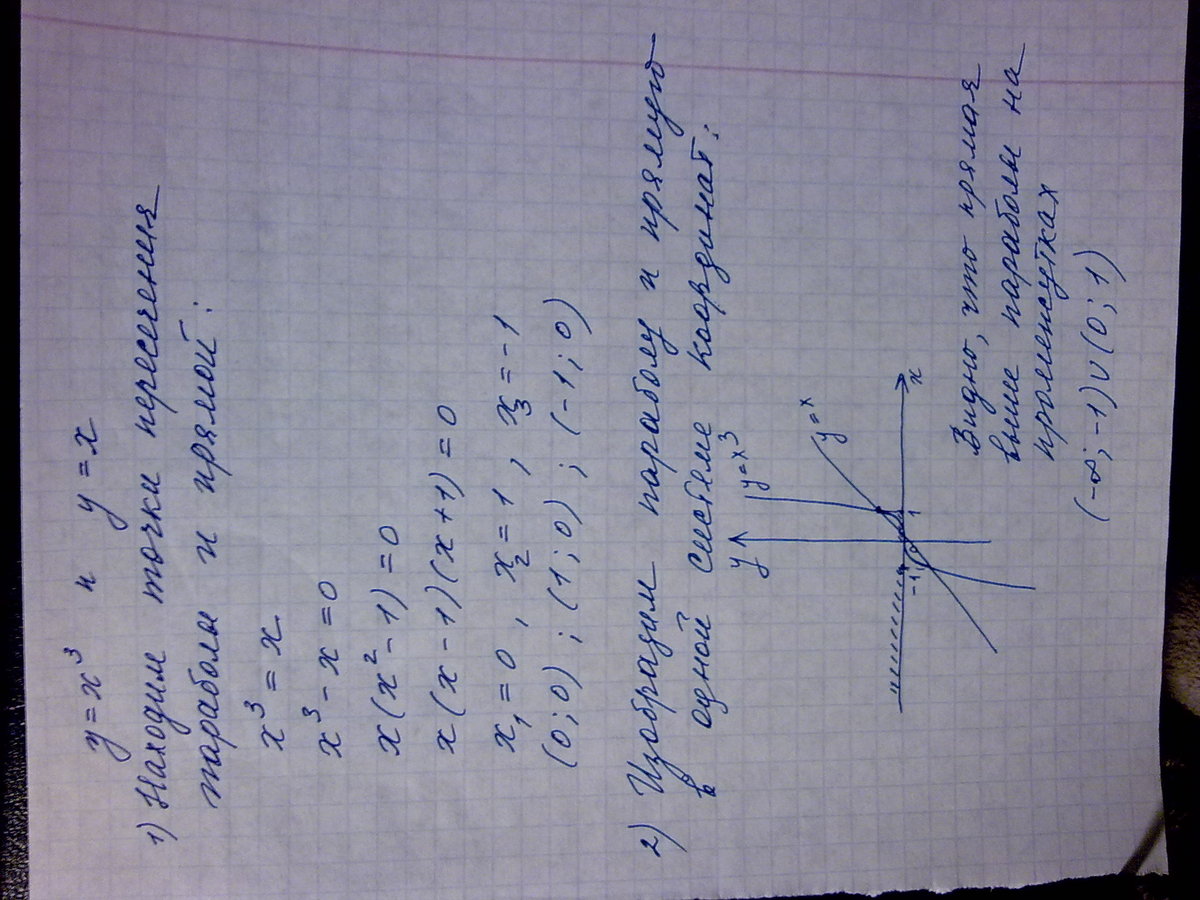 y = x³ и y = x
1) Находим точки пересечения
параболы и прямой:
x³ = x
x³ - x = 0
x(x² - 1) = 0
x(x - 1)(x + 1) = 0
x₁ = 0, x₂ = 1, x₃ = -1
(0; 0); (1; 0); (-1; 0)
2) Изобразим параболу и прямую
в одной системе координат:
y
y = x³
y = x
x
-1
1
Видно, что прямая
выше параболы на
промежутках
(-∞; -1) ∪ (0; 1)